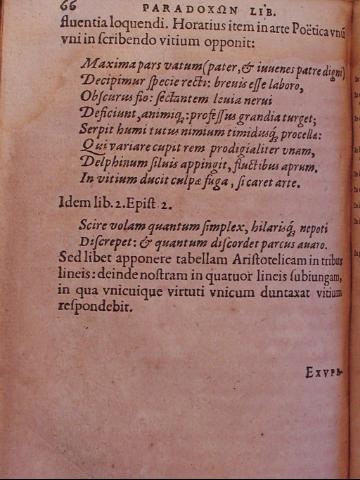 66 PARADOXΩN LIB.
fluentia loquendi. Horatius item in arte Poëtica vnũ
vni in scribendo vitium opponit:
Maxima pars vatum (pater, & iuuenes patre digni)
Decipimur specie recti: breuis esse laboro,
Obscurus fio: sectantem leuia nerui
Deficiunt, animiq;: professus grandia turget;
Serpit humi tutus nimium timidusq́; procellæ:
Qui variare cupit rem prodigialiter vnam,
Delphinum siluis appingit, fluctibus aprum.
In vitium ducit culpæ fuga, si caret arte.
Idem lib. 2. Epist 2.
Scire volam quantum simplex, hilarisq́; nepoti
Discrepet: & quantum discordet parcus auaro.
Sed libet apponere tabellam Aristotelicam in tribus
lineis: deinde nostram in quatuor lineis subiungam,
in qua vnicuique virtuti vnicum duntaxat vitium
respondebit.
EXVPE-